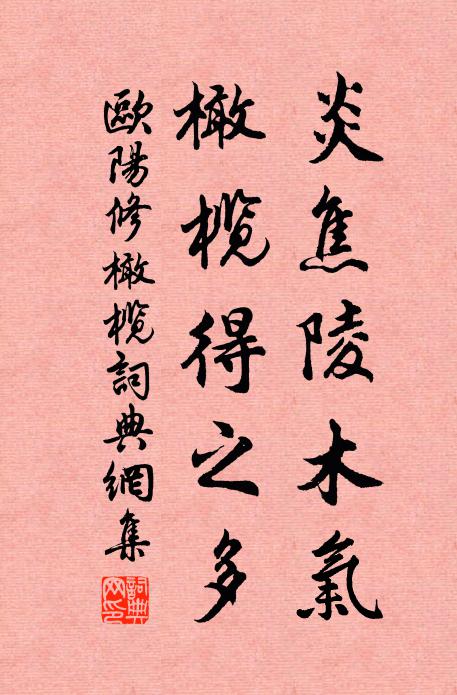 炎焦陵木氣
橄欖得之多
歐陽修橄欖詞典網集
詞典
網印